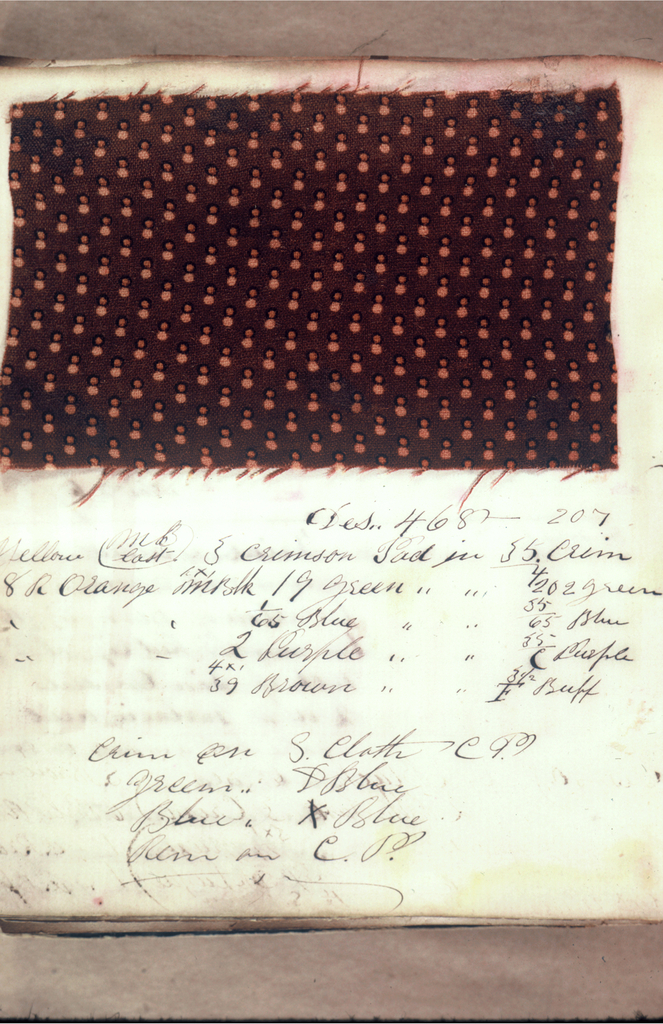 Des.. 4682 — 207
Yellow (M B last) 3 Crimson Pad in 35. Crim
8 R Orange M Blk 19 Green " " 4/202 Green
" " 1/65 Blue " " 35/65 Blue
" – 2 Purple " " 35/C Purple
4x1/39 Brown " " 3 1/2/F Buff
Crim on S. Cloth C P
Green " Blue
Blue " X Blue "
Rem on C. P.